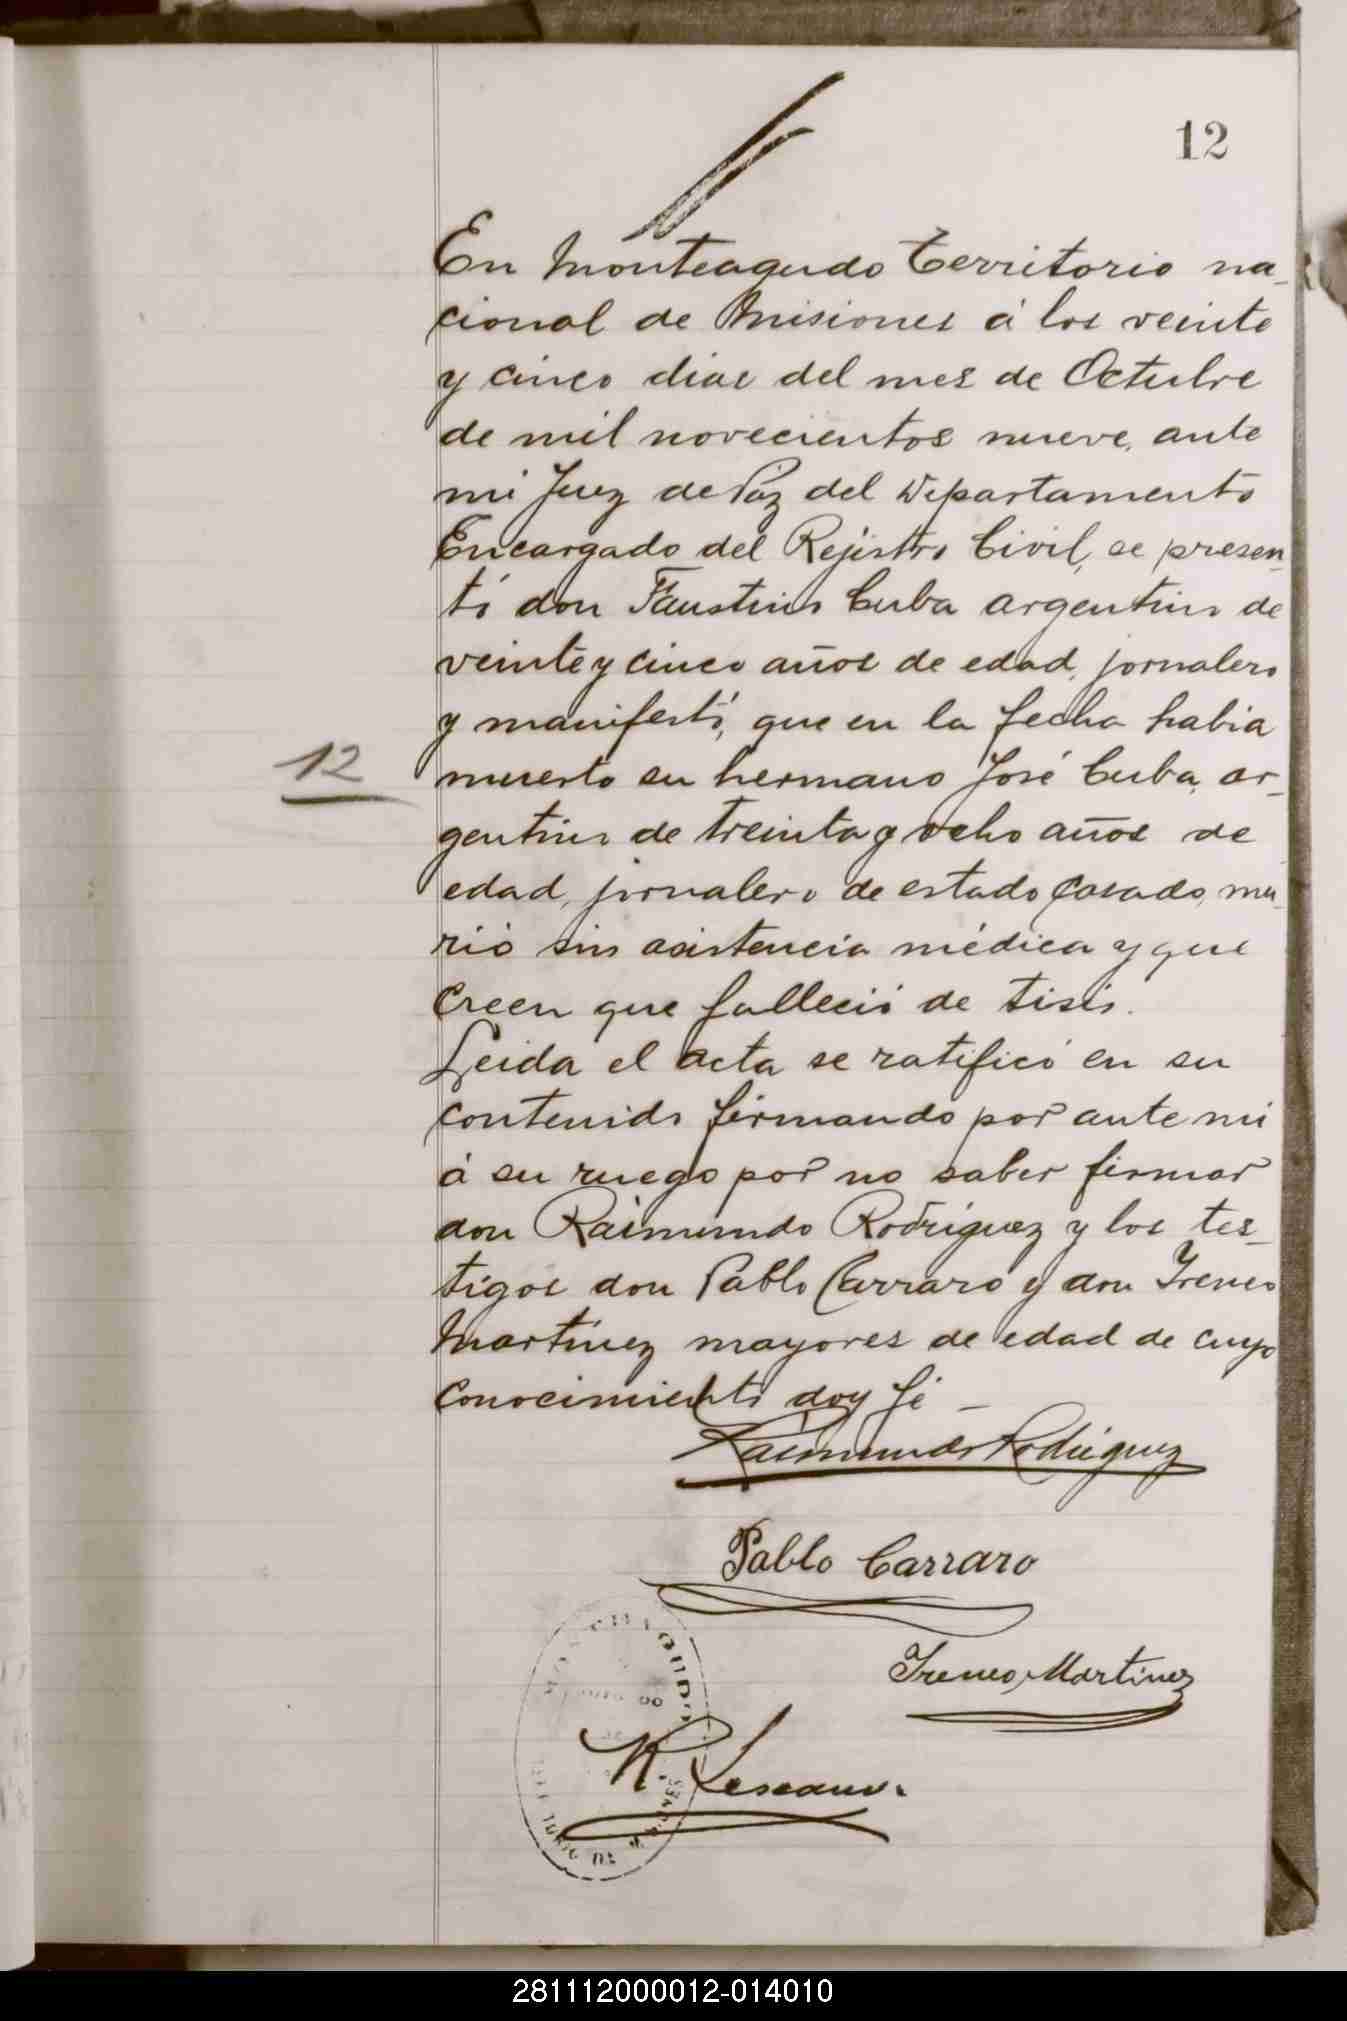 12
En Monteagudo Territorio na-
cional de Misiones á los veinte
y cinco dias del mes de Octubre
de mil novecientos nueve, ante
mi Juez de Paz del Departamento
Encargado del Rejistro Civil, se presen-
tó don Faustino Cuba argentino de
veinte y cinco años de edad, jornalero
y manifestó, que en la fecha habia
12
muerto su hermano José Cuba, ar-
gentino de treinta y ocho años de
edad, jornalero de estado casado, mu-
rió sin asistencia médica y que
creen que falleció de tisis.
Leida el acta se ratificó en su
contenido firmando por ante mi
á su ruego por no saber firmar
don Raimundo Rodriguez y los tes-
tigos don Pablo Carraro y don Ireneo
Martinez mayores de edad de cuyo
conocimiento doy fé —
Raimundo Rodriguez
Pablo Carraro
Ireneo Martinez
281112000012-014010